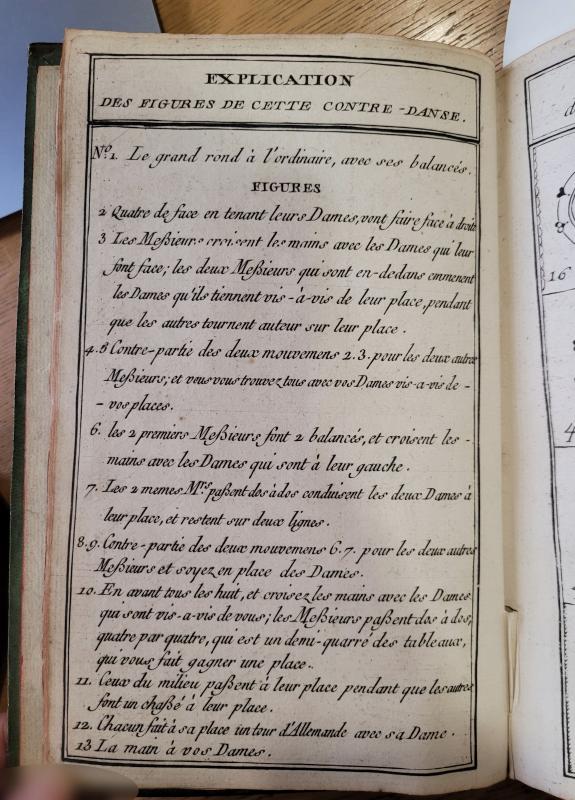 EXPLICATION
DES FIGURES DE CETTE CONTRE-DANSE.
No. 1. Le grand rond à l'ordinaire, avec ses balancés.
FIGURES
2 Quatre de face en tenant leurs Dames, vont faire face à droite
3 Les Meßieurs croisent les mains avec les Dames qui leur
font face; les deux Meßieurs qui sont en-dedans emmenent
les Dames qu'ils tiennent vis-à-vis de leur place, pendant
que les autres tournent auteur sur leur place.
4.5 Contre-partie des deux mouvemens 2.3. pour les deux autres
Meßieurs; et vous vous trouvez tous avec vos Dames vis-a-vis de -
- vos places.
6. les 2 premiers Meßieurs font 2 balancés, et croisent les -
mains avec les Dames qui sont à leur gauche.
7. Les 2 memes Mrs paßent dos à dos conduisent les deux Dames à
leur place, et restent sur deux lignes.
8.9. Contre-partie des deux mouvemens 6.7. pour les deux autres
Meßieurs et soyez en place des Dames.
10. En avant tous les huit, et croisez les mains avec les Dames
qui sont vis-a-vis de vous; les Meßieurs paßent dos à dos,
quatre par quatre, qui est un demi-quarré des tableaux,
qui vous fait gagner une place.
11. Ceux du milieu paßent à leur place pendant que les autres
font un chaßé à leur place.
12. Chacun fait à sa place un tour d'Allemande avec sa Dame.
13 La main à vos Dames.
16
4